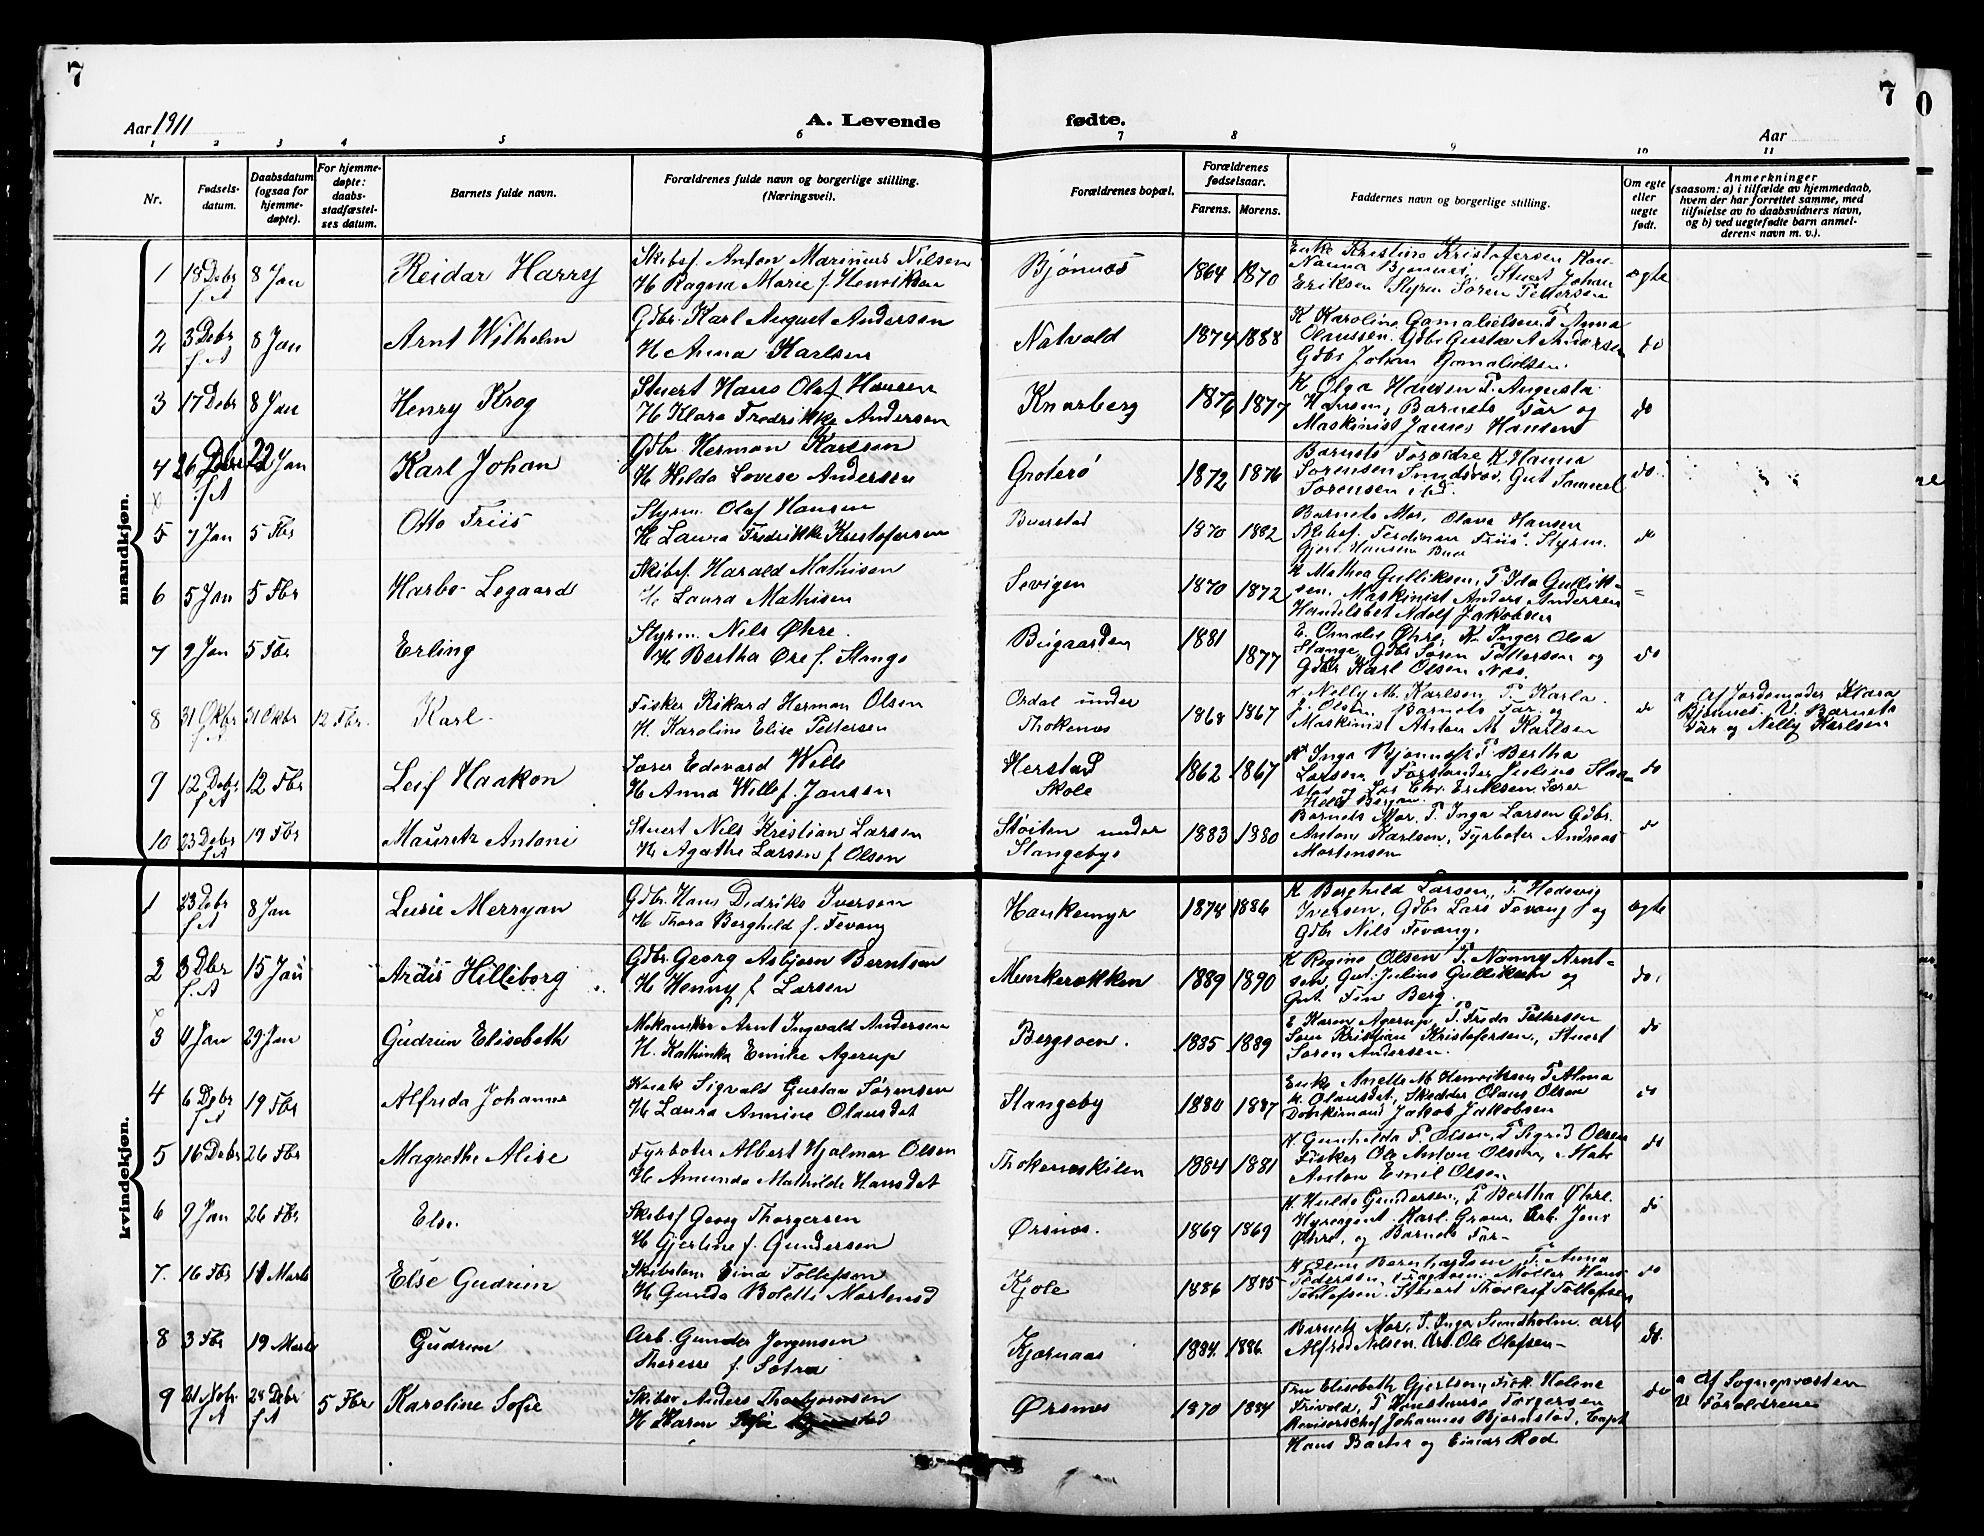 7
7
Aar 1911
A. Levende
fødte.
Aar
1 2 3 4 5 6 7 8 9 10 11
Nr.
Fødsels-
datum.
Daabsdatum
(ogsaa for
hjemme-
døpte).
For hjemme-
døpte:
daabs-
stadfæstel-
ses datum.
Barnets fulde navn.
Forældrenes fulde navn og borgerlige stilling.
(Næringsvei).
Forældrenes bopæl.
Forældrenes
fødselsaar.
Farens. Morens.
Faddernes navn og borgerlige stilling.
Om egte
eller
uegte
født.
Anmerkninger
(saasom: a) i tilfælde av hjemmedaab,
hvem der har forrettet samme, med
tilføielse av to daabsvidners navn,
og b) ved uegtefødte barn anmel-
derens navn m. v.).
mandkjøn.
1 18 Debr f.A 8 Jan Reidar Harry
Skibsf. Anton Marinius Nilsen
H Ragna Marie f. Henriksen
Bjönnæs 1864 1870
Enke Kristina Kristofersen
Nanna Bjønnes, Stuert Johan
Eriksen Styrm Sören Pettersen
ægte
2 3 Debr f.A 8 Jan Arnt Wilhelm
Gdbr. Karl August Andersen
H Anna Karlsen
Natvald 1874 1888
K Karoline Gamalielsen, P. Anna
Olaussen. Gdbr Gustav A Andersen
Gdbr Johan Gamalielsen.
do
3 17 Debr 8 Jan Henry Krog
Stuert Hans Olaf Hansen
H Klara Fredrikke Andersen
Knarberg 1876 1877
K Olga Hansen P. Augusta
Hansen, Barnets Far og
Maskinist James Hansen
do
4 26 Debr f.A 22 Jan Karl Johan
Gdbr Herman Karlsen
H Hilda Lovise Andersen
Groterö 1872 1876
Barnets Forældre K Hanna
Sörensen Sundsvos, Gut Samuel
Sörensen
do.
5 7 Jan 5 Fbr Otto Friis
Styrm. Olaf Hansen
H Laura Fredrikke Kristofersen
Buerstad 1870 1882
Barnets Mor, Olava Hansen
Skibsf. Ferdinan Friis, Styrm.
Gjert Hansen Buer
do
6 5 Jan 5 Fbr Harbo Legaard
Skibsf. Harald Mathisen
H. Laura Mathisen
Sevigen 1870 1872
K Mathea Gulliksen, P. Ida Gullik-
sen. Maskinist Anders Andersen
Handelsbet Adolf Jakobsen
7 9 Jan 5 Fbr Erling
Styrm. Nils Øhre.
H Bertha Öre f. Stange
Bugaarden 1881 1877
E. Omalie Øhre, K. Inger Olea
Stange, Gdbr Sören Pettersen og
Gdbr Karl Olsen Næs.
do
8 31 Okbr f.A 31 Okbr 12 Fbr. Karl
Fisker Rikard Herman Olsen
H. Karoline Elise Pettersen
Ordal under
Thokenes 1868 1867
K Nelly M. Karlsen P. Karla
J. Olsen, Barnets Far og
Maskinist Anton M Karlsen
do
a Af Jordemoder Klara
Bjönnes. V. Barnets
Far og Nelly Karlsen
9 12 Debr f.A 12 Fbr Leif Haakon
Lærer Edevard Wille
H Anna Wille f. Jansen
Herstad
Skole 1862 1867
K Inga Bjønnes P. Bertha
Larsen, Forstander Julius
stad og Los Chr. Eriksen, Lærer
do
10 23 Debr f.A 19 Fbr Mauritz Antoni
Stuert Nils Kristian Larsen
H. Agathe Larsen f Olsen
Støiten under
Stangeby 1883 1880
Barnets Mor, P. Inga Larsen Gdbr.
Anton Karlsen, Fyrbøter Andreas
Mortensen
do
kvindekjøn.
1 23 Debr f.A 8 Jan Lucie Merryan
Gdbr. Hans Dedriks Iversen
H Thora Berghild f. Fevang
Haukemyr 1874 1886
K Berghild Larsen, P. Hedevig
Iversen, Gdbr Lars Fevang og
Gdbr Nils Fevang.
ægte
2 3 Dbr f.A 15 Jan Ardis Hilleborg
Gdbr. Georg Asbjørn Berntsen
H Henny f Larsen
Munkerekken 1889 1890
K Regine Olsen P. Nanny Arnt-
sen, Gut. Julius Gulliksen og
Gut. Fin Berg.
do.
3 4 Jan 29 Jan Gudrun Elisabeth
Mekaniker Arnt Ingvald Andersen
H. Kathinka Emilie Agerup
Bergsoen. 1885 1889
E Karen Agerup, P. Freda Pettersen
Kristian Kristofersen, Stuert
Soren Andersen.
do
4 6 Debr f.A 19 Fbr Alfrida Johanne
Kusk Sigvald Gustav Sørensen
H Laura Annine Olausdat
Stangeby 1880 1887
Enke Anette M. Henriksen P Alma
K. Olausdat, Skredder Olaus Olsen
Donkimand Jakob Jakobsen
do
5 16 Debr 26 Fbr Magrethe Alise
Fyrbøter Albert Hjalmar Olsen
H Amunda Mathilde Hansdat
Thokeneskilen 1884 1881
K. Gunhilda P. Olsen, P Sigrid Olsen
Fisker Ole Anton Olsen,
Anton Emil Olsen
do
6 9 Jan 26 Fbr Else
Skibsf Georg Thorgersen
H Gjerline f. Gundersen
Ørsnes. 1869 1869
K. Hulda Gundersen, P Bertha Øhre.
Hyreagent Karl Arb. Jens
Øhre, og Barnets Far-
do
7. 16 Fbr 11 Marts Else Gudrun
Einar Tollefsen
H Gunda Bolette Mortensd
Kjøle 1886 1885
K Berntsen P. Anna
Pedersen, Møller Hans
Tollefsen. Stuert Thorleif Tollefsen
do
8 3 Fbr 19 Marts Gudrun
Arb. Gunder Jørgensen
Therese f. Sotra
Kjærnaas 1884. 1886.
Barnets Mor, P. Inga Sundholm. Arb
Alfred Nilsen. Arb. Ole Olafsen-
do.
9 21 Nobr f.A 28 Debr f.A 5 Fbr Karoline Sofie
Skibsr Anders Thorbjørnsen
H Karen Sofie
Ørsnes 1870 1884
Fru Elisabeth Gjertsen, Frøk Helene
Trivold, P Konstanse Torgersen
Revisorschef Johannes Bjørnstad, Capt
Hans Barth og Einar Rød.
do
a Af Sognepræsten
V Forældrene